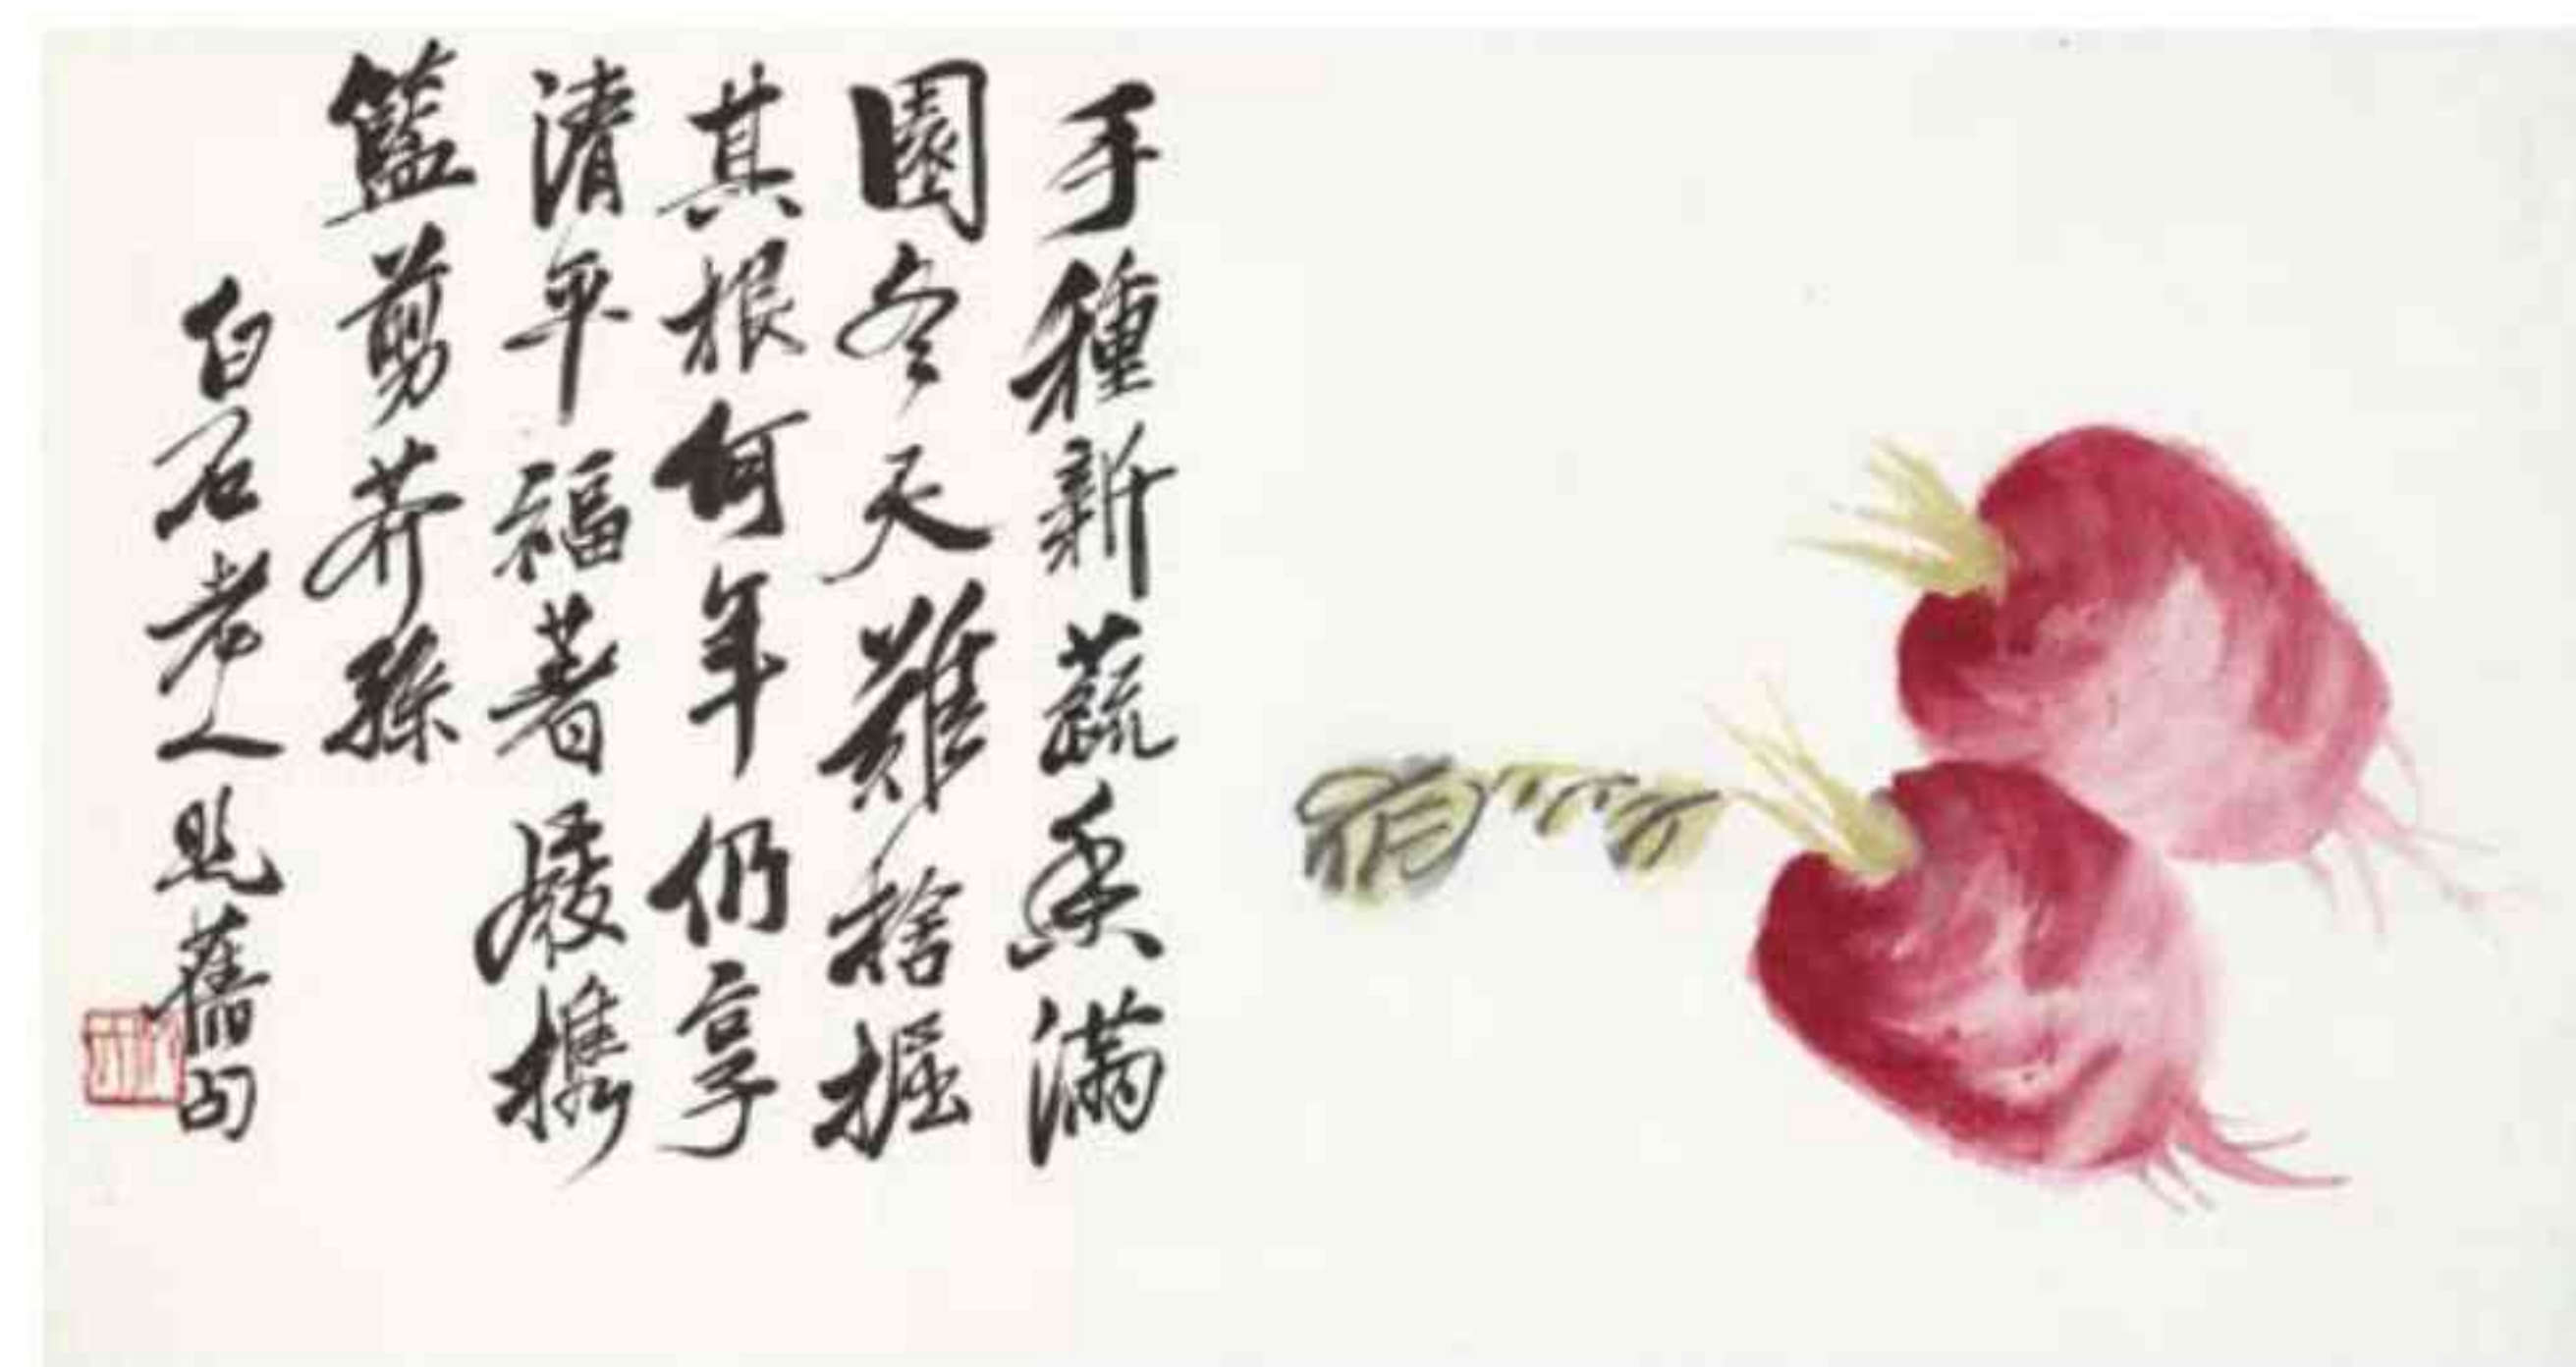 手種新蔬香滿
園冬天難捨掘
其根何年仍享
清平福著屐攜
籃剪芥孫
白石老人舊句